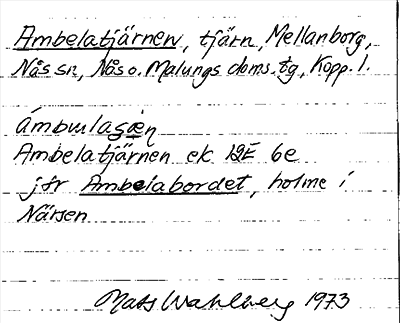 Ambelatjärnen, tjärn, Mellanborg,
Nås sn, Nås o. Malungs doms. tg, Kopp. l.
Ambelatjärnen ek 12E 6e
jfr Ambelabordet, holme i
Närsen
Mats Wahlberg 1973